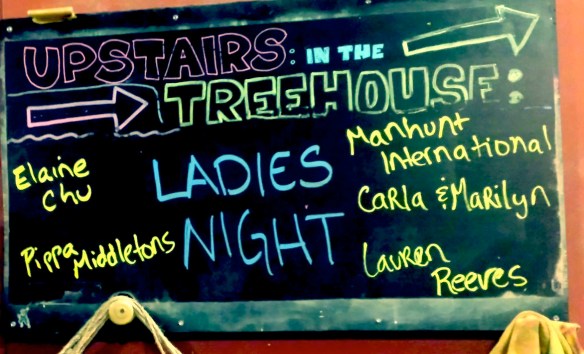 UPSTAIRS: IN THE
TREEHOUSE:
Elaine
Chu
Pippa Middletons
LADIES
NIGHT
Manhunt
International
Carla & Marilyn
Lauren
Reeves